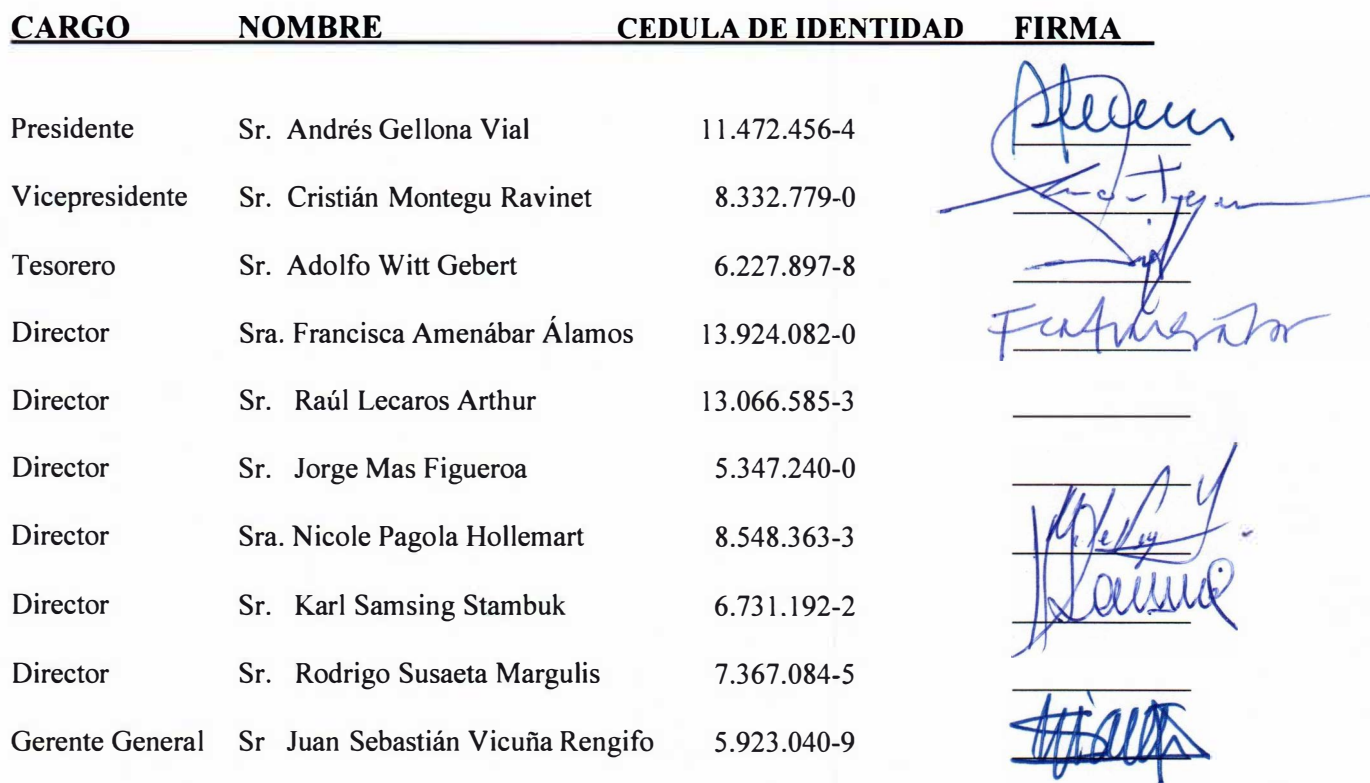 CARGO NOMBRE CEDULA DE IDENTIDAD FIRMA
Presidente Sr. Andrés Gellona Vial 11.472.456-4
Vicepresidente Sr. Cristián Montegu Ravinet 8.332.779-0
Tesorero Sr. Adolfo Witt Gebert 6.227.897-8
Director Sra. Francisca Amenábar Álamos 13.924.082-0
Director Sr. Raúl Lecaros Arthur 13.066.585-3
Director Sr. Jorge Mas Figueroa 5.347.240-0
Director Sra. Nicole Pagola Hollemart 8.548.363-3
Director Sr. Karl Samsing Stambuk 6.731.192-2
Director Sr. Rodrigo Susaeta Margulis 7.367.084-5
Gerente General Sr Juan Sebastián Vicuña Rengifo 5.923.040-9